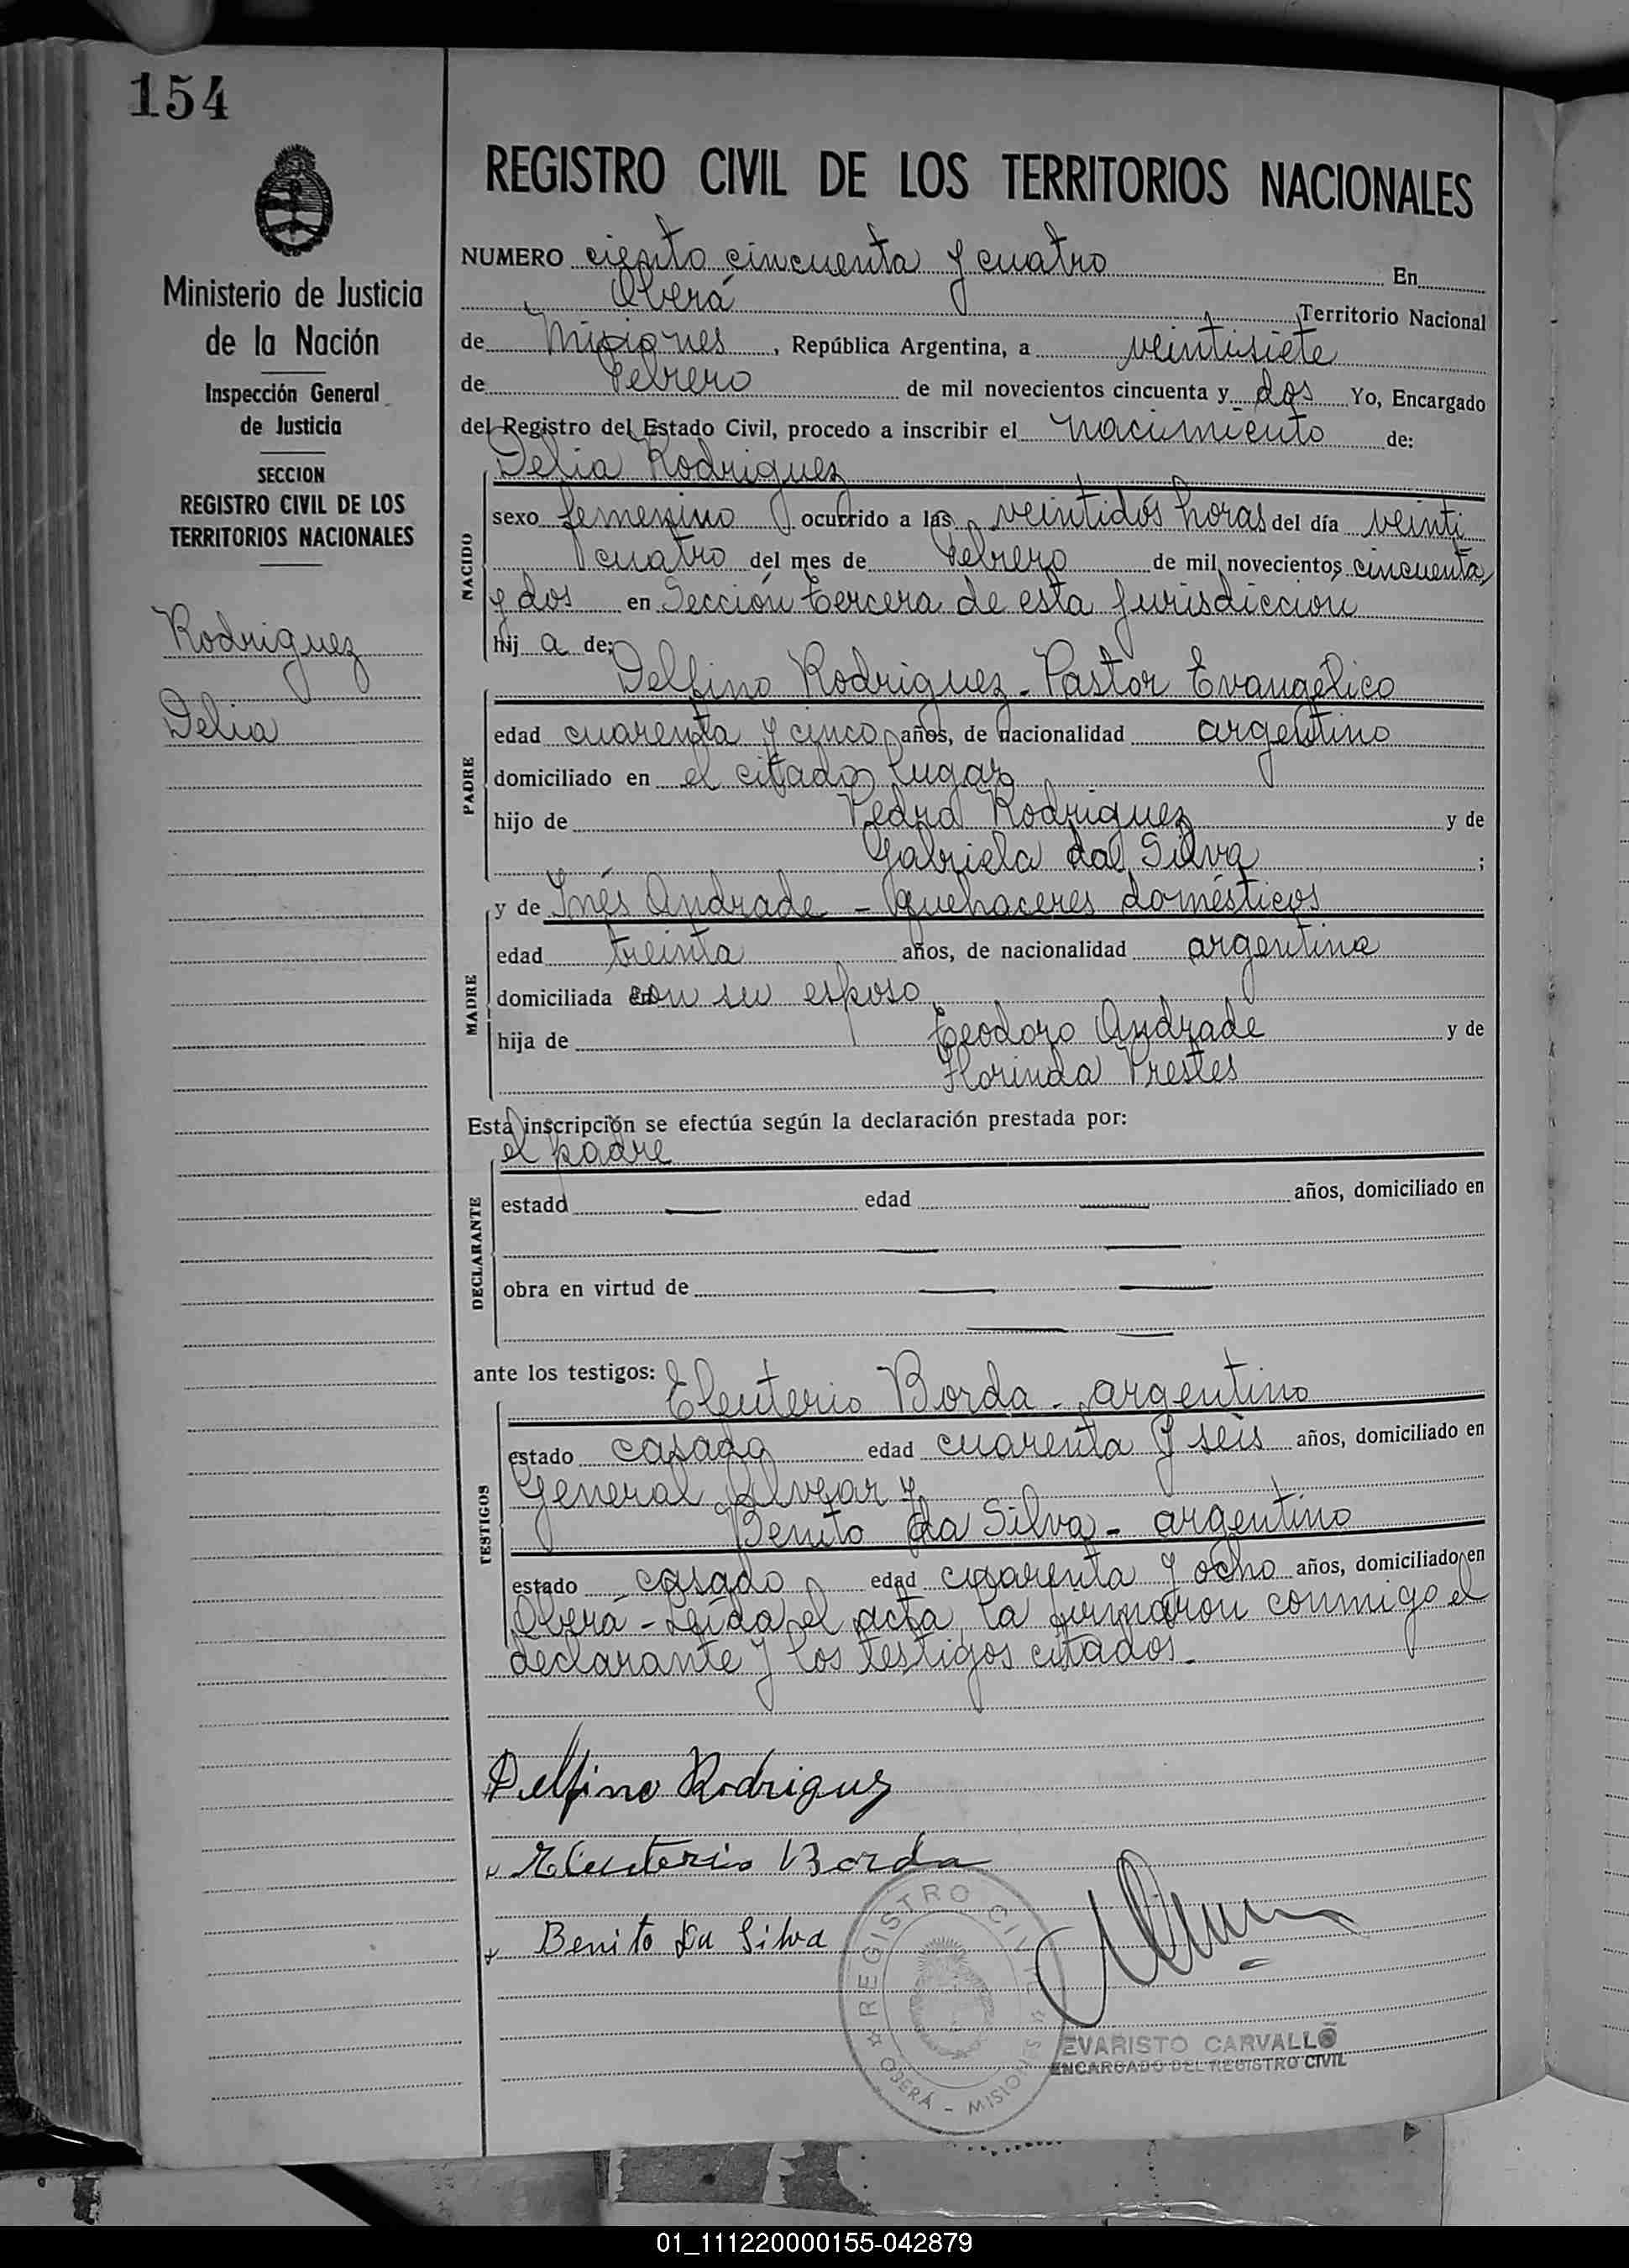 154
Ministerio de Justicia
de la Nación
Inspección General
de Justicia
SECCION
REGISTRO CIVIL DE LOS
TERRITORIOS NACIONALES
Rodriguez
Delia
REGISTRO CIVIL DE LOS TERRITORIOS NACIONALES
NUMERO ciento cincuenta y cuatro En
Oberá Territorio Nacional
de Misiones, República Argentina, a veintisiete
de Febrero de mil novecientos cincuenta y dos Yo, Encargado
del Registro del Estado Civil, procedo a inscribir el nacimiento de:
NACIDO
Delia Rodriguez
sexo femenino ocurrido a las veintidós horas del día veinti
cuatro del mes de Febrero de mil novecientos cincuenta
y dos en Sección tercera de esta jurisdicción
hij a de:
PADRE
Delfino Rodriguez - Pastor Evangélico
edad cuarenta y cinco años, de nacionalidad argentino
domiciliado en el citado lugar
hijo de Pedro Rodriguez y de
Gabriela da Silva ;
MADRE
y de Inés Andrade - quehaceres domésticos
edad treinta años, de nacionalidad argentina
domiciliada en con su esposo
hija de Teodoro Andrade y de
Florinda Prestes
Esta inscripción se efectúa según la declaración prestada por:
DECLARANTE
el padre
estado edad años, domiciliado en
obra en virtud de
ante los testigos: Eleuterio Borda - argentino
TESTIGOS
estado casado edad cuarenta y seis años, domiciliado en
General Alvear y
Benito Da Silva - argentino
estado casado edad cuarenta y ocho años, domiciliado en
Oberá - Leída el acta, la firmaron conmigo el
declarante y los testigos citados.-
Delfino Rodriguz
Eleuterio Borda
Benito Da Silva
REGISTRO CIVIL
OBERÁ - MISIONES
EVARISTO CARVALLO
ENCARGADO DEL REGISTRO CIVIL
01_111220000155-042879